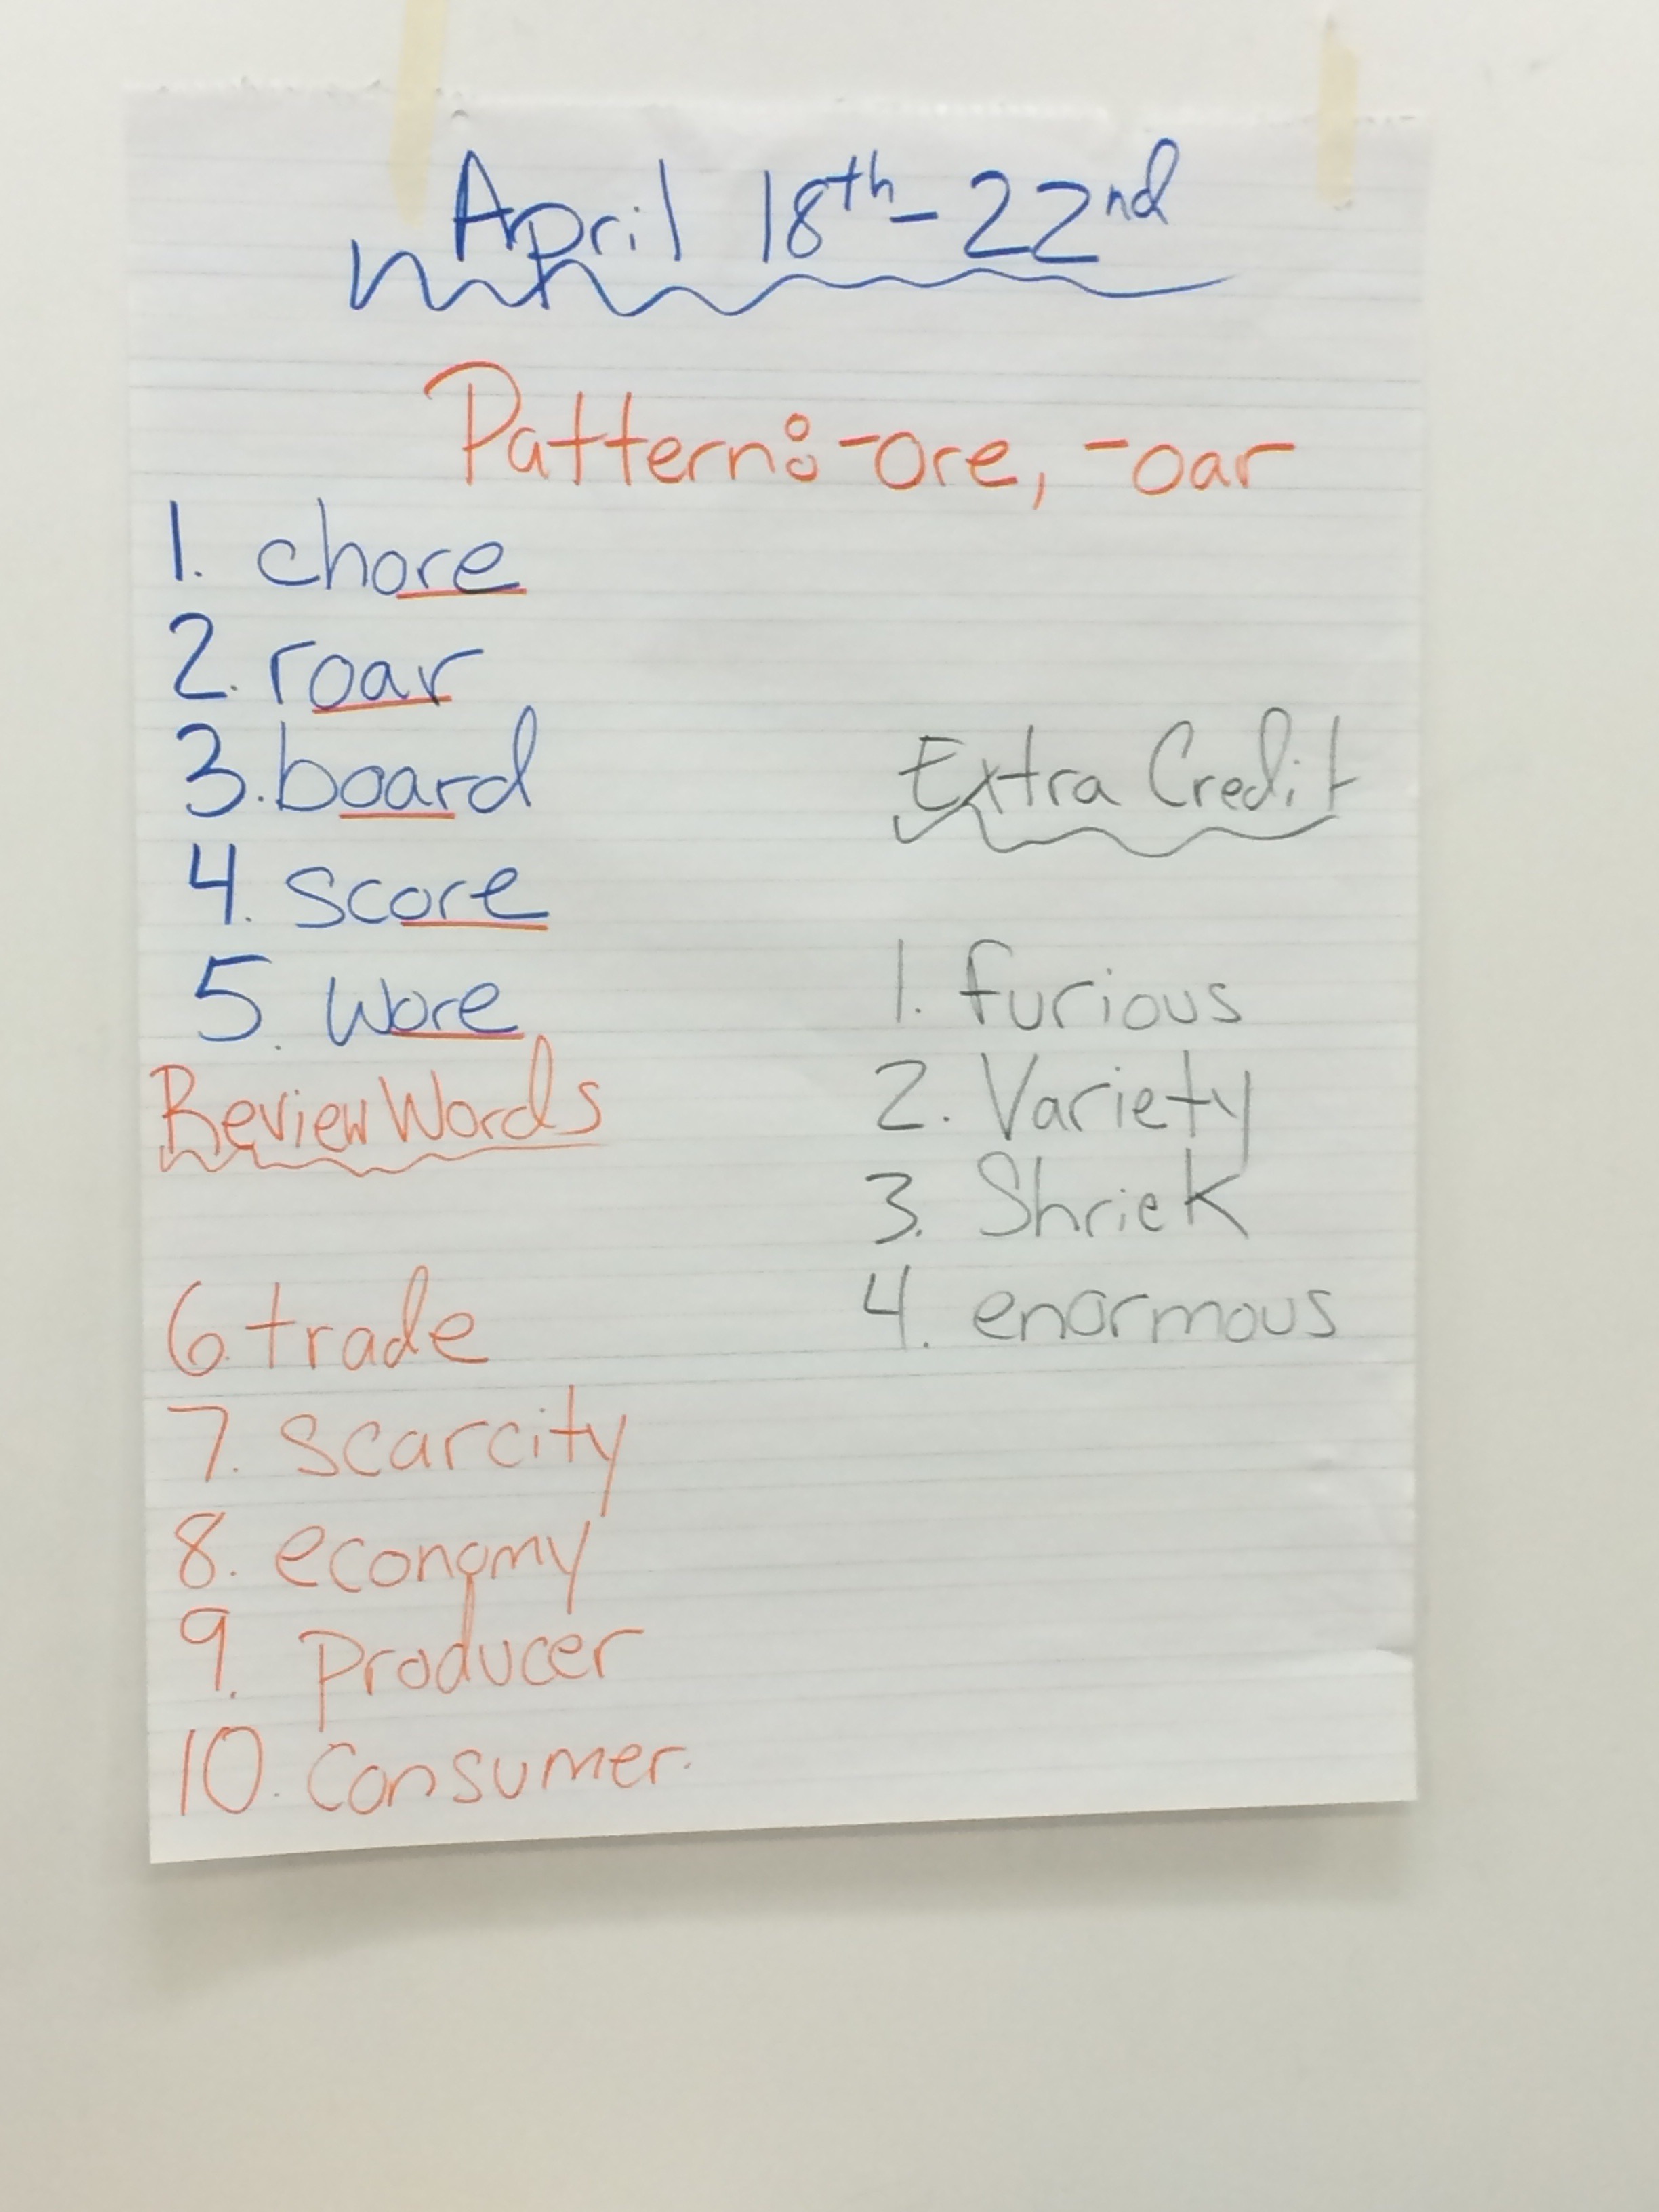 April 18th-22nd
Pattern: -ore, -oar
1. chore
2. roar
3. board
4. score
5. wore
Review Words
6. trade
7. scarcity
8. economy
9. producer
10. consumer.
Extra Credit
1. furious
2. Variety
3. Shriek
4. enormous